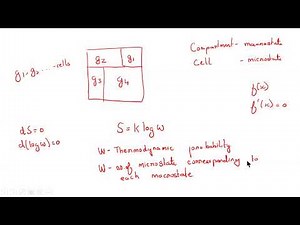 g₁, g₂ ..... cells
g₂ g₁
g₃ g₄
Compartment - macrostate
Cell - microstate
f(x)
f'(x) = 0
dS=0
d(log w)=0
S = k log w
W - Thermodynamic probability
W - no. of microstate corresponding to
each macrostate